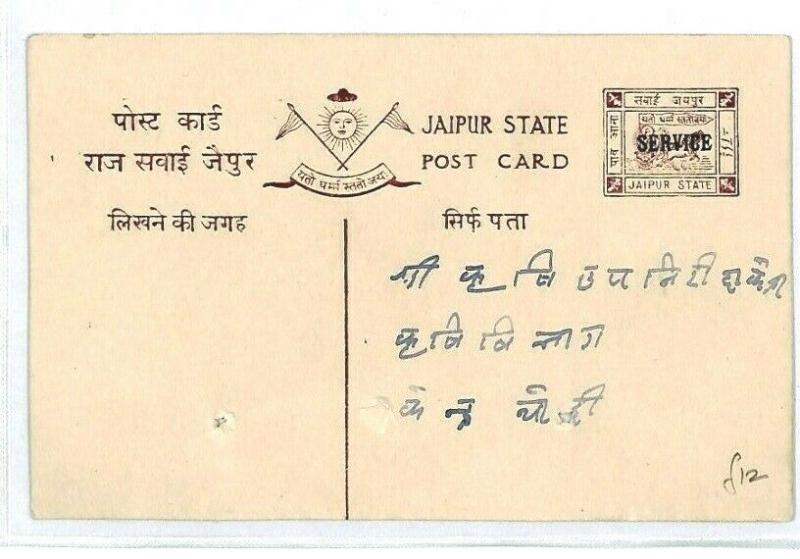 पोस्ट कार्ड
राज सवाई जैपुर
यतो धर्म्म स्ततो जयः
JAIPUR STATE
POST CARD
सवाई जयपुर
यतो धर्म्म स्ततो जयः
पाव आना
SERVICE
JAIPUR STATE
लिखने की जगह
सिर्फ पता
श्री कृषि उप निरीक्षक
कृषि विभाग
केन्द्र